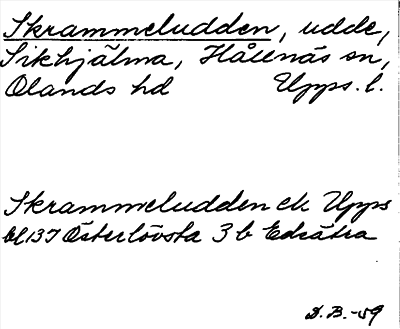 Skrammeludden, udde,
Sikhjälma, Hållnäs sn,
Olands hd Upps. l.
Skrammeludden ek Upps
bl 137 Österlövsta 3 b Edsätra
D. B. -59